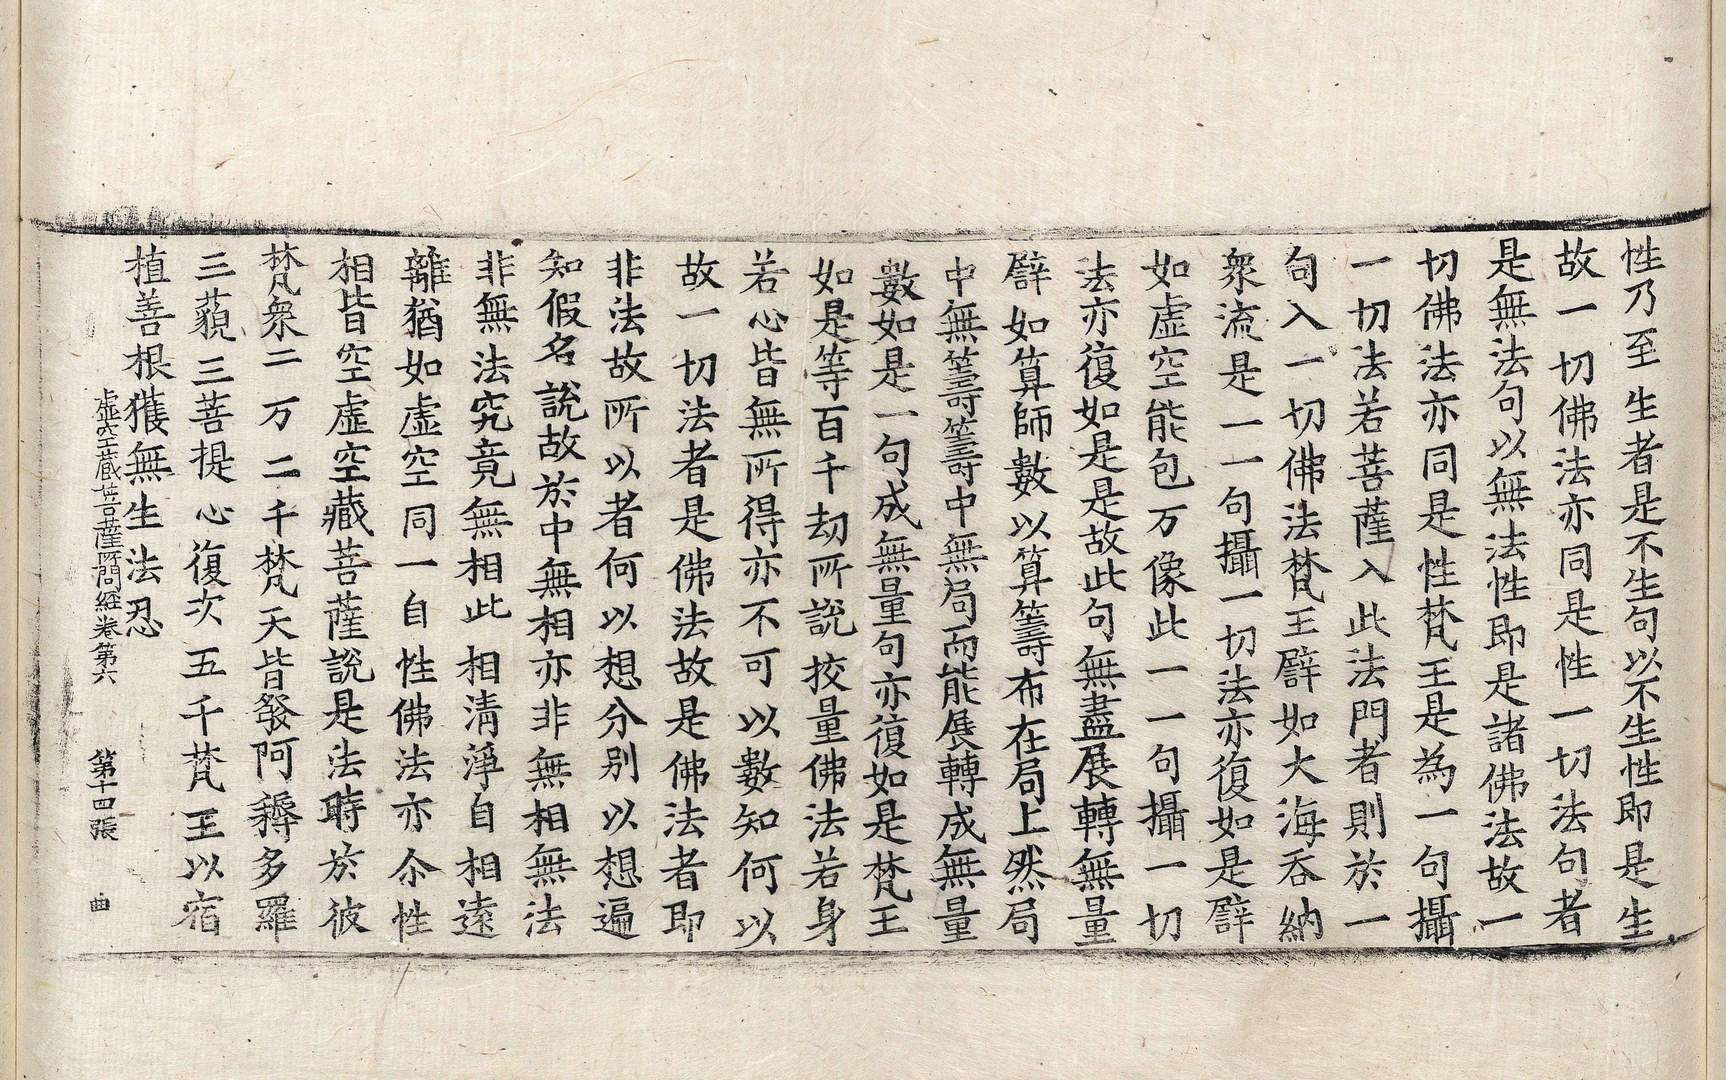 性乃至生者是不生句以不生性即是生
故一切佛法亦同是性一切法句者
是無法句以無法性即是諸佛法故一
切佛法亦同是性梵王是為一句攝
一切法若菩薩入此法門者則於一
句入一切佛法梵王譬如大海吞納
衆流是一一句攝一切法亦復如是譬
如虛空能包万像此一一句攝一切
法亦復如是是故此句無盡展轉無量
譬如算師數以算籌布在局上然局
中無籌籌中無局而能展轉成無量
數如是一句成無量句亦復如是梵王
如是等百千劫所說挍量佛法若身
若心皆無所得亦不可以數知何以
故一切法者是佛法故是佛法者即
非法故所以者何以想分別以想遍
知假名說故於中無相亦非無相無法
非無法究竟無相此相清淨自相遠
離猶如虛空同一自性佛法亦尒性
相皆空虛空藏菩薩說是法時於彼
梵衆二万二千梵天皆發阿耨多羅
三藐三菩提心復次五千梵王以宿
植善根獲無生法忍
虛空藏菩薩所問經卷第六　第十四張　曲